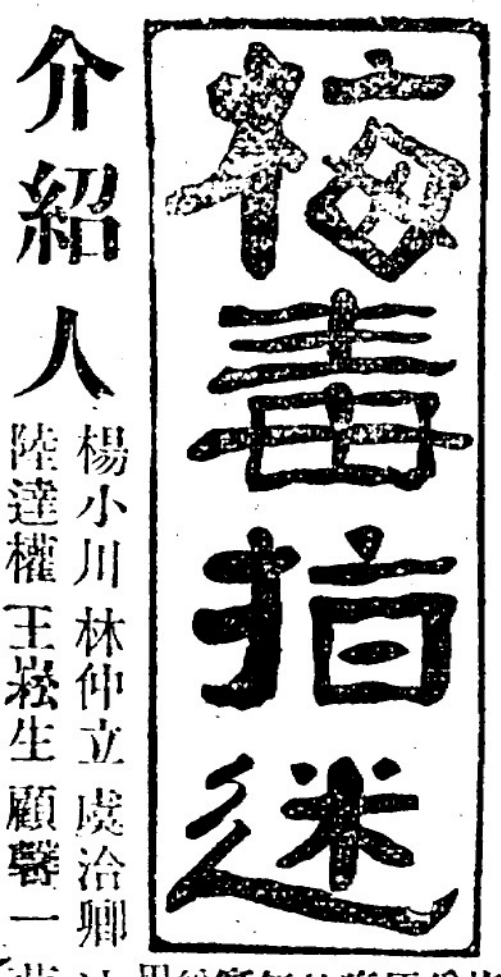 梅毒指迷
介紹人
楊小川 林仲立 虞洽卿
陸達權 王崧生 顧馨一